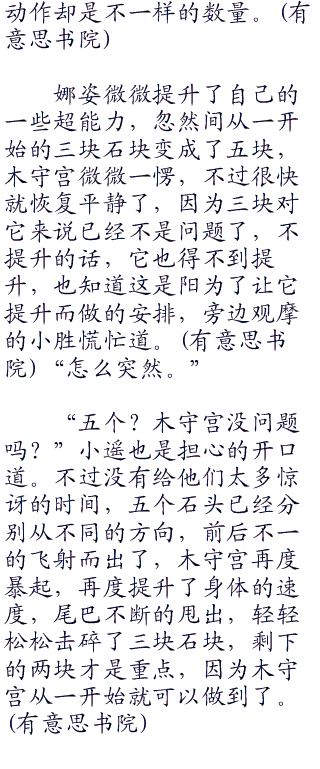 动作却是不一样的数量。(有
意思书院)
娜姿微微提升了自己的
一些超能力，忽然间从一开
始的三块石块变成了五块，
木守宫微微一愣，不过很快
就恢复平静了，因为三块对
它来说已经不是问题了，不
提升的话，它也得不到提
升，也知道这是阳为了让它
提升而做的安排，旁边观摩
的小胜慌忙道。(有意思书
院)“怎么突然。”
“五个？木守宫没问题
吗？”小遥也是担心的开口
道。不过没有给他们太多惊
讶的时间，五个石头已经分
别从不同的方向，前后不一
的飞射而出了，木守宫再度
暴起，再度提升了身体的速
度，尾巴不断的甩出，轻轻
松松击碎了三块石块，剩下
的两块才是重点，因为木守
宫从一开始就可以做到了。
(有意思书院)